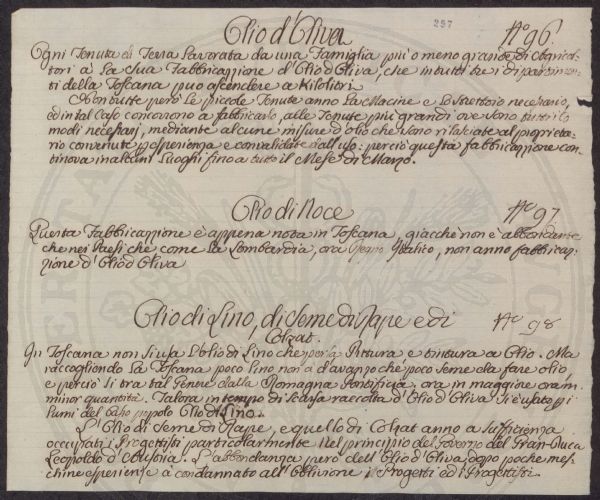 257
Olio d'Oliva N.º 96.
Ogni Tenuta di Terra Lavorata da una Famiglia più o meno grande di Agricol-
tori à La sua Fabbricazione d'Olio d'Oliva, che in tutti tre i dipartimen-
ti della Toscana può ascendere a Kilolitri
Non tutte però le piccole Tenute anno La Macine e Lo Strettoio necessario,
ed in tal Caso concorrono a fabbricarlo, alle Tenute più grandi ove sono tutti li
modi necessarj, mediante alcune misure d'olio che sono rilasciate al proprieta-
rio convenute, e convalidate dall'uso: perciò questa fabbricazione con-
tinova in alcuni Luoghi fino a tutto il Mese di Marzo.
Olio di Noce N.º 97.
Questa Fabbricazione è appena nota in Toscana, giacchè non è abbondante
che nei Paesi che come La Lombardia, ora Regno Italico, non anno fabbrica-
zione d'Olio d'Oliva
Olio di Lino, di Seme di Rape e di N.º 98
Colzat.
In Toscana non si usa L'olio di Lino che per la Pittura e tintura a Olio. Ma
raccogliendo La Toscana poco Lino non n'à d'avanzo che poco seme da fare olio
e perciò si tra tal Genere dalla Romagna Pontificia, ora in maggiore ora in
minor quantità. Talora in tempo di Scarsa raccolta d'Olio d'Oliva, si è usato pei
Lumi del basso popolo Olio di Lino.
L'Olio di Seme di Rape, e quello di Colzat anno a Sufficienza
occupati i Progettisti particolarmente Nel principio del Governo del Gran-Duca
Leopoldo d'Austria. L'abbondanza però dell'Olio d'Oliva, dopo poche mes-
chine esperienze à condannato all'Oblivione i Progetti ed i Progettisti.